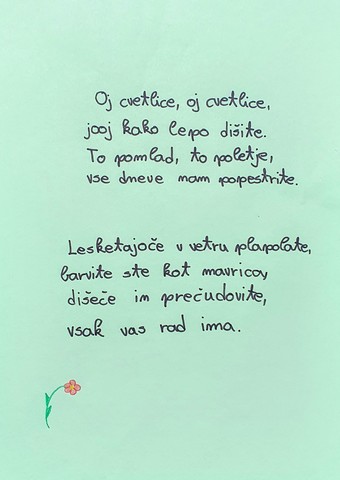 Oj cvetlice, oj cvetlice,
jooj kako lepo dišite.
To pomlad, to poletje,
vse dneve nam popestrite.
Lesketajoče v vetru plapolate,
barvite ste kot mavrica,
dišeče in prečudovite,
vsak vas rad ima.